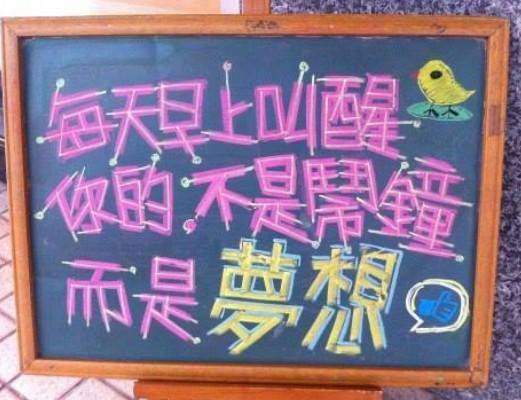 每天早上叫醒
你的.不是鬧鐘
而是夢想